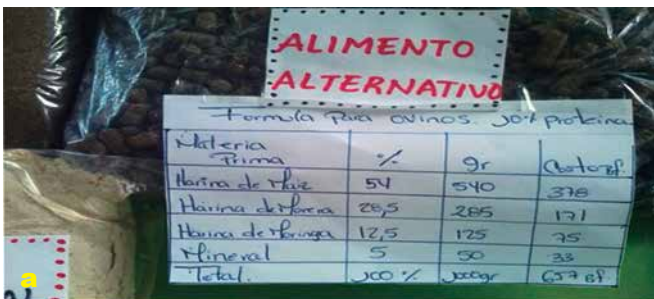 ALIMENTO
ALTERNATIVO
Formula Para ovinos. 10% proteina
Materia Prima % gr Costo Bf.
Harina de Maiz 54 540 378
Harina de Morera 28,5 285 171
Harina de Moringa 12,5 125 75
Mineral 5 50 33
Total. 100 % 1000gr 657 Bf.
a